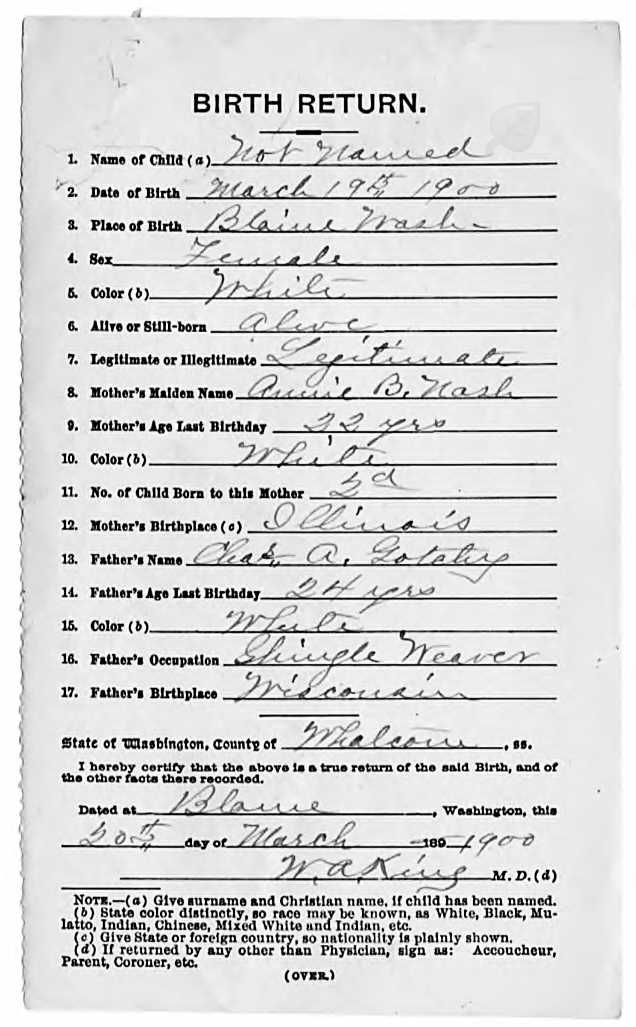 BIRTH RETURN.
1. Name of Child (a) Not Named
2. Date of Birth March 19th, 1900
3. Place of Birth Blaine Wash.
4. Sex Female
5. Color (b) White
6. Alive or Still-born alive
7. Legitimate or Illegitimate Legitimate
8. Mother's Maiden Name Annie B. Nash
9. Mother's Age Last Birthday 22 yrs
10. Color (b) White
11. No. of Child Born to this Mother 2d
12. Mother's Birthplace (c) Illinois
13. Father's Name Chas. A.
14. Father's Age Last Birthday 24 yrs
15. Color (b) White
16. Father's Occupation Shingle Weaver
17. Father's Birthplace Wisconsin
State of Washington, County of Whatcom, ss.
I hereby certify that the above is a true return of the said Birth, and of
the other facts there recorded.
Dated at Blaine, Washington, this
20th day of March 189 1900
W. A. King M. D. (d)
NOTE.—(a) Give surname and Christian name, if child has been named.
(b) State color distinctly, so race may be known, as White, Black, Mu-
latto, Indian, Chinese, Mixed White and Indian, etc.
(c) Give State or foreign country, so nationality is plainly shown.
(d) If returned by any other than Physician, sign as: Accoucheur,
Parent, Coroner, etc.
(OVER.)